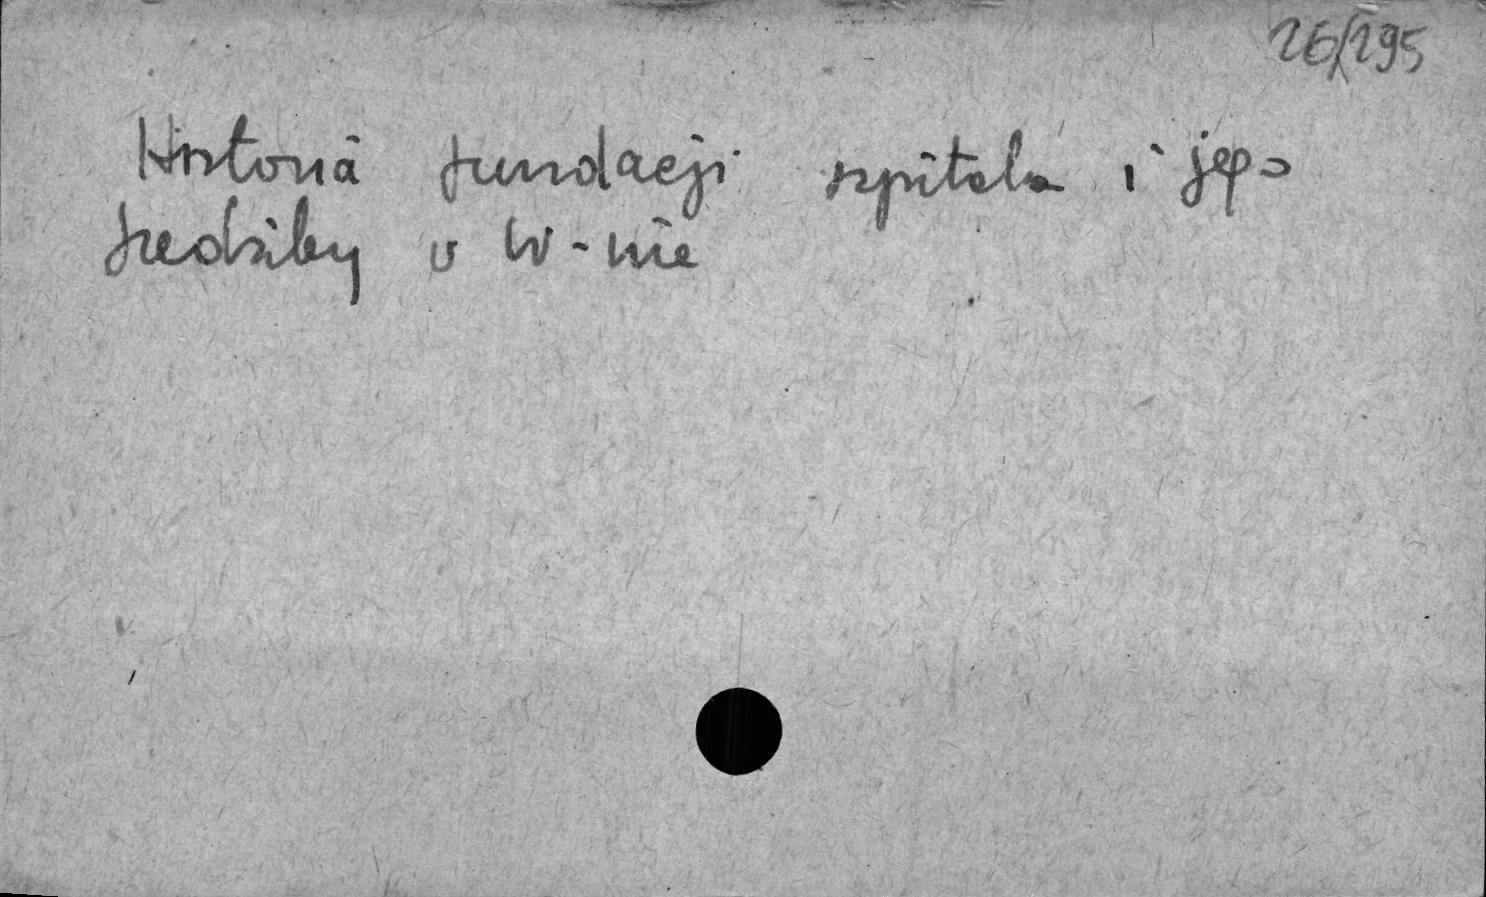 26/295
Historia fundacji szpitala i jego
siedziby w W-wie